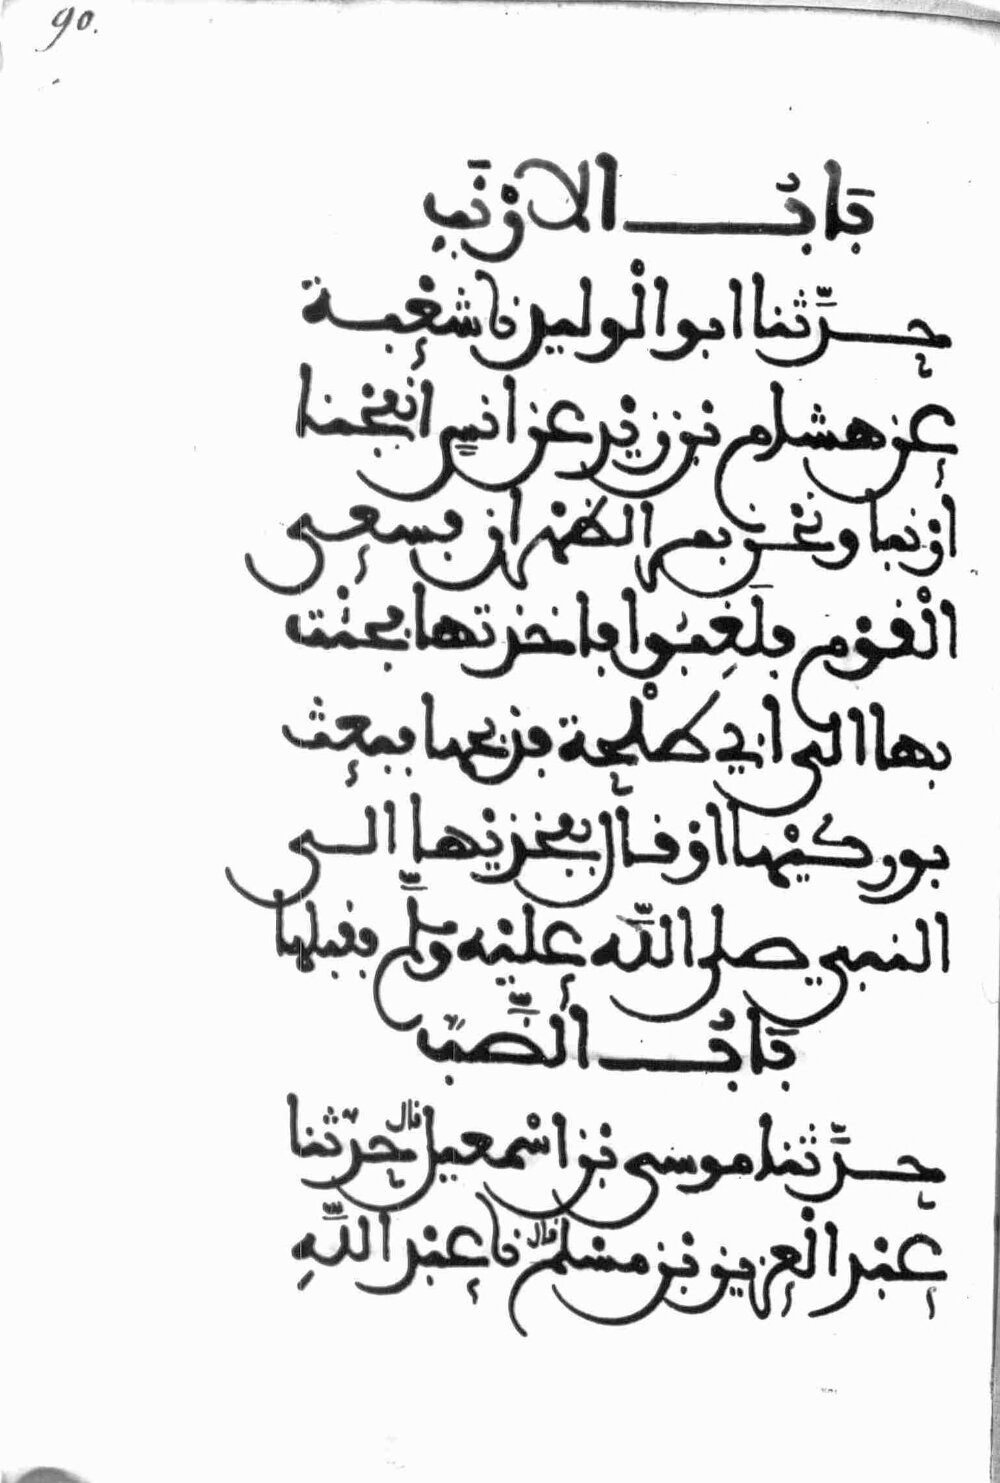 90.
بَابُ الارْنَبِ
حدّثنا ابو الْوليد نا شعْبة
عن هشام بن زيْد عن انس انفجنا
ارْنبا ونحْن بمر الظهْران فسعى
الْقوْم فلَغِبُوا فاخذتها فجئْت
بها الى ابي طلْحة فذبحها فبعث
بوركيْها اوْ قال بفخذيْها الى
النبي صلى اللّه عليْه وسلّم فقبلها
بَابُ الضَّبّ
حدّثنا موسى بن اسْمعيل قال حدّثنا
عبْد الْعزيز بْن مسْلم قال نا عبْد اللّهِ